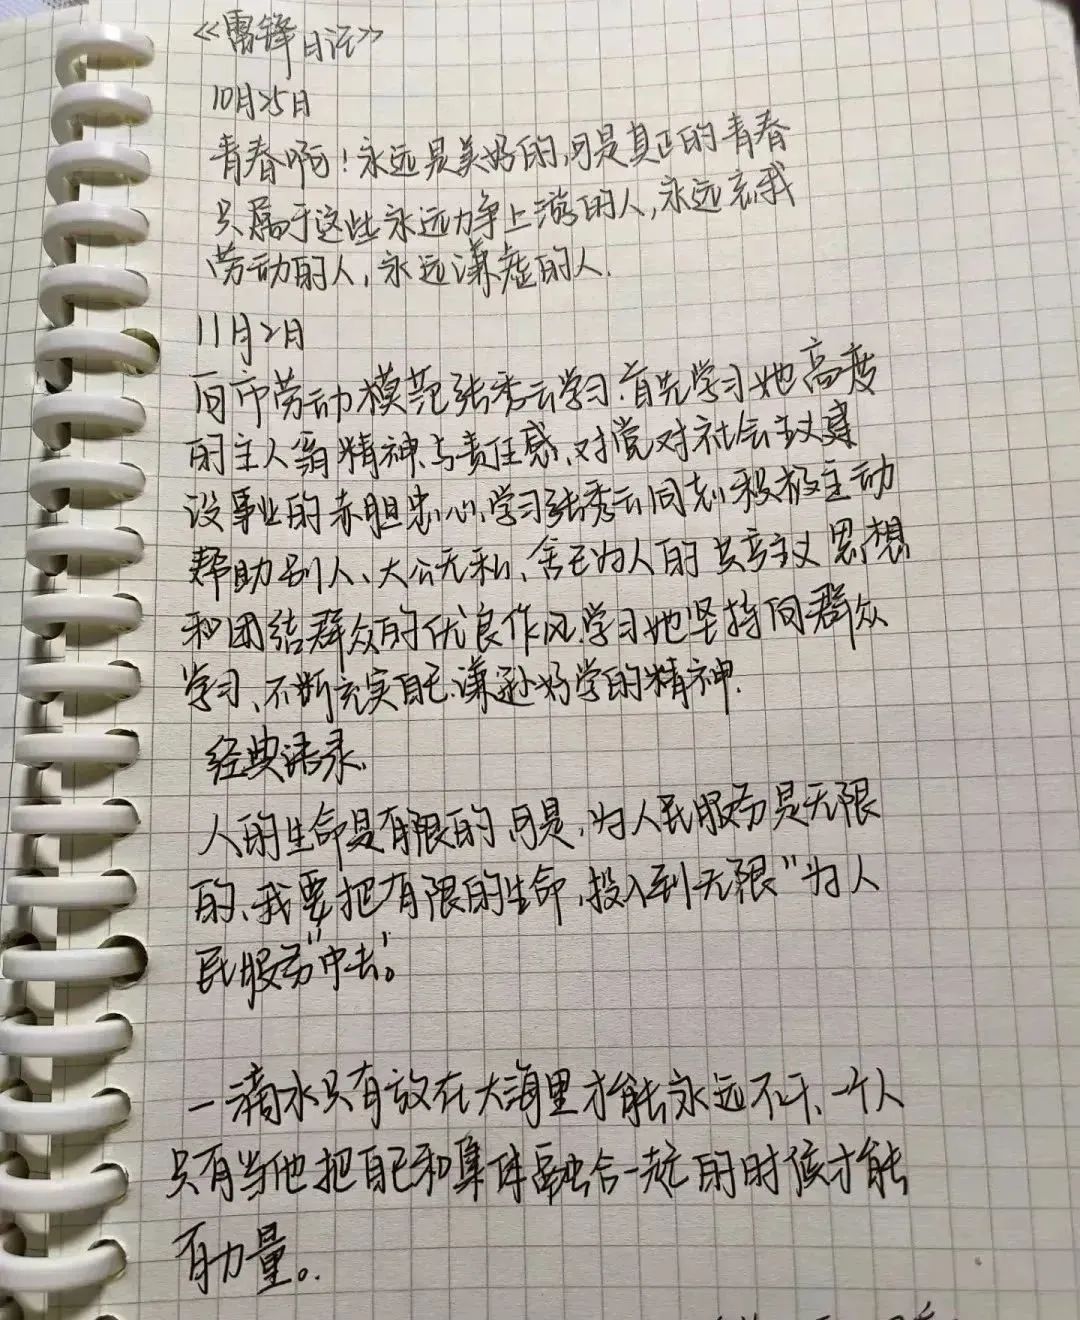 《雷锋日记》
10月25日
青春啊！永远是美好的，可是真正的青春
只属于这些永远力争上游的人，永远忘我
劳动的人，永远谦虚的人.
11月2日
向市劳动模范张秀云学习.首先学习她高度
的主人翁精神与责任感、对党对社会主义建
设事业的赤胆忠心，学习张秀云同志积极主动
帮助别人、大公无私、舍己为人的共产主义思想
和团结群众的优良作风.学习她坚持向群众
学习、不断充实自己谦逊好学的精神.
经典语录.
人的生命是有限的，可是，为人民服务是无限
的、我要把有限的生命，投入到无限"为人
民服务"中去。
一滴水只有放在大海里才能永远不干、一个人
只有当他把自己和集体融合一起的时候才能
有力量。